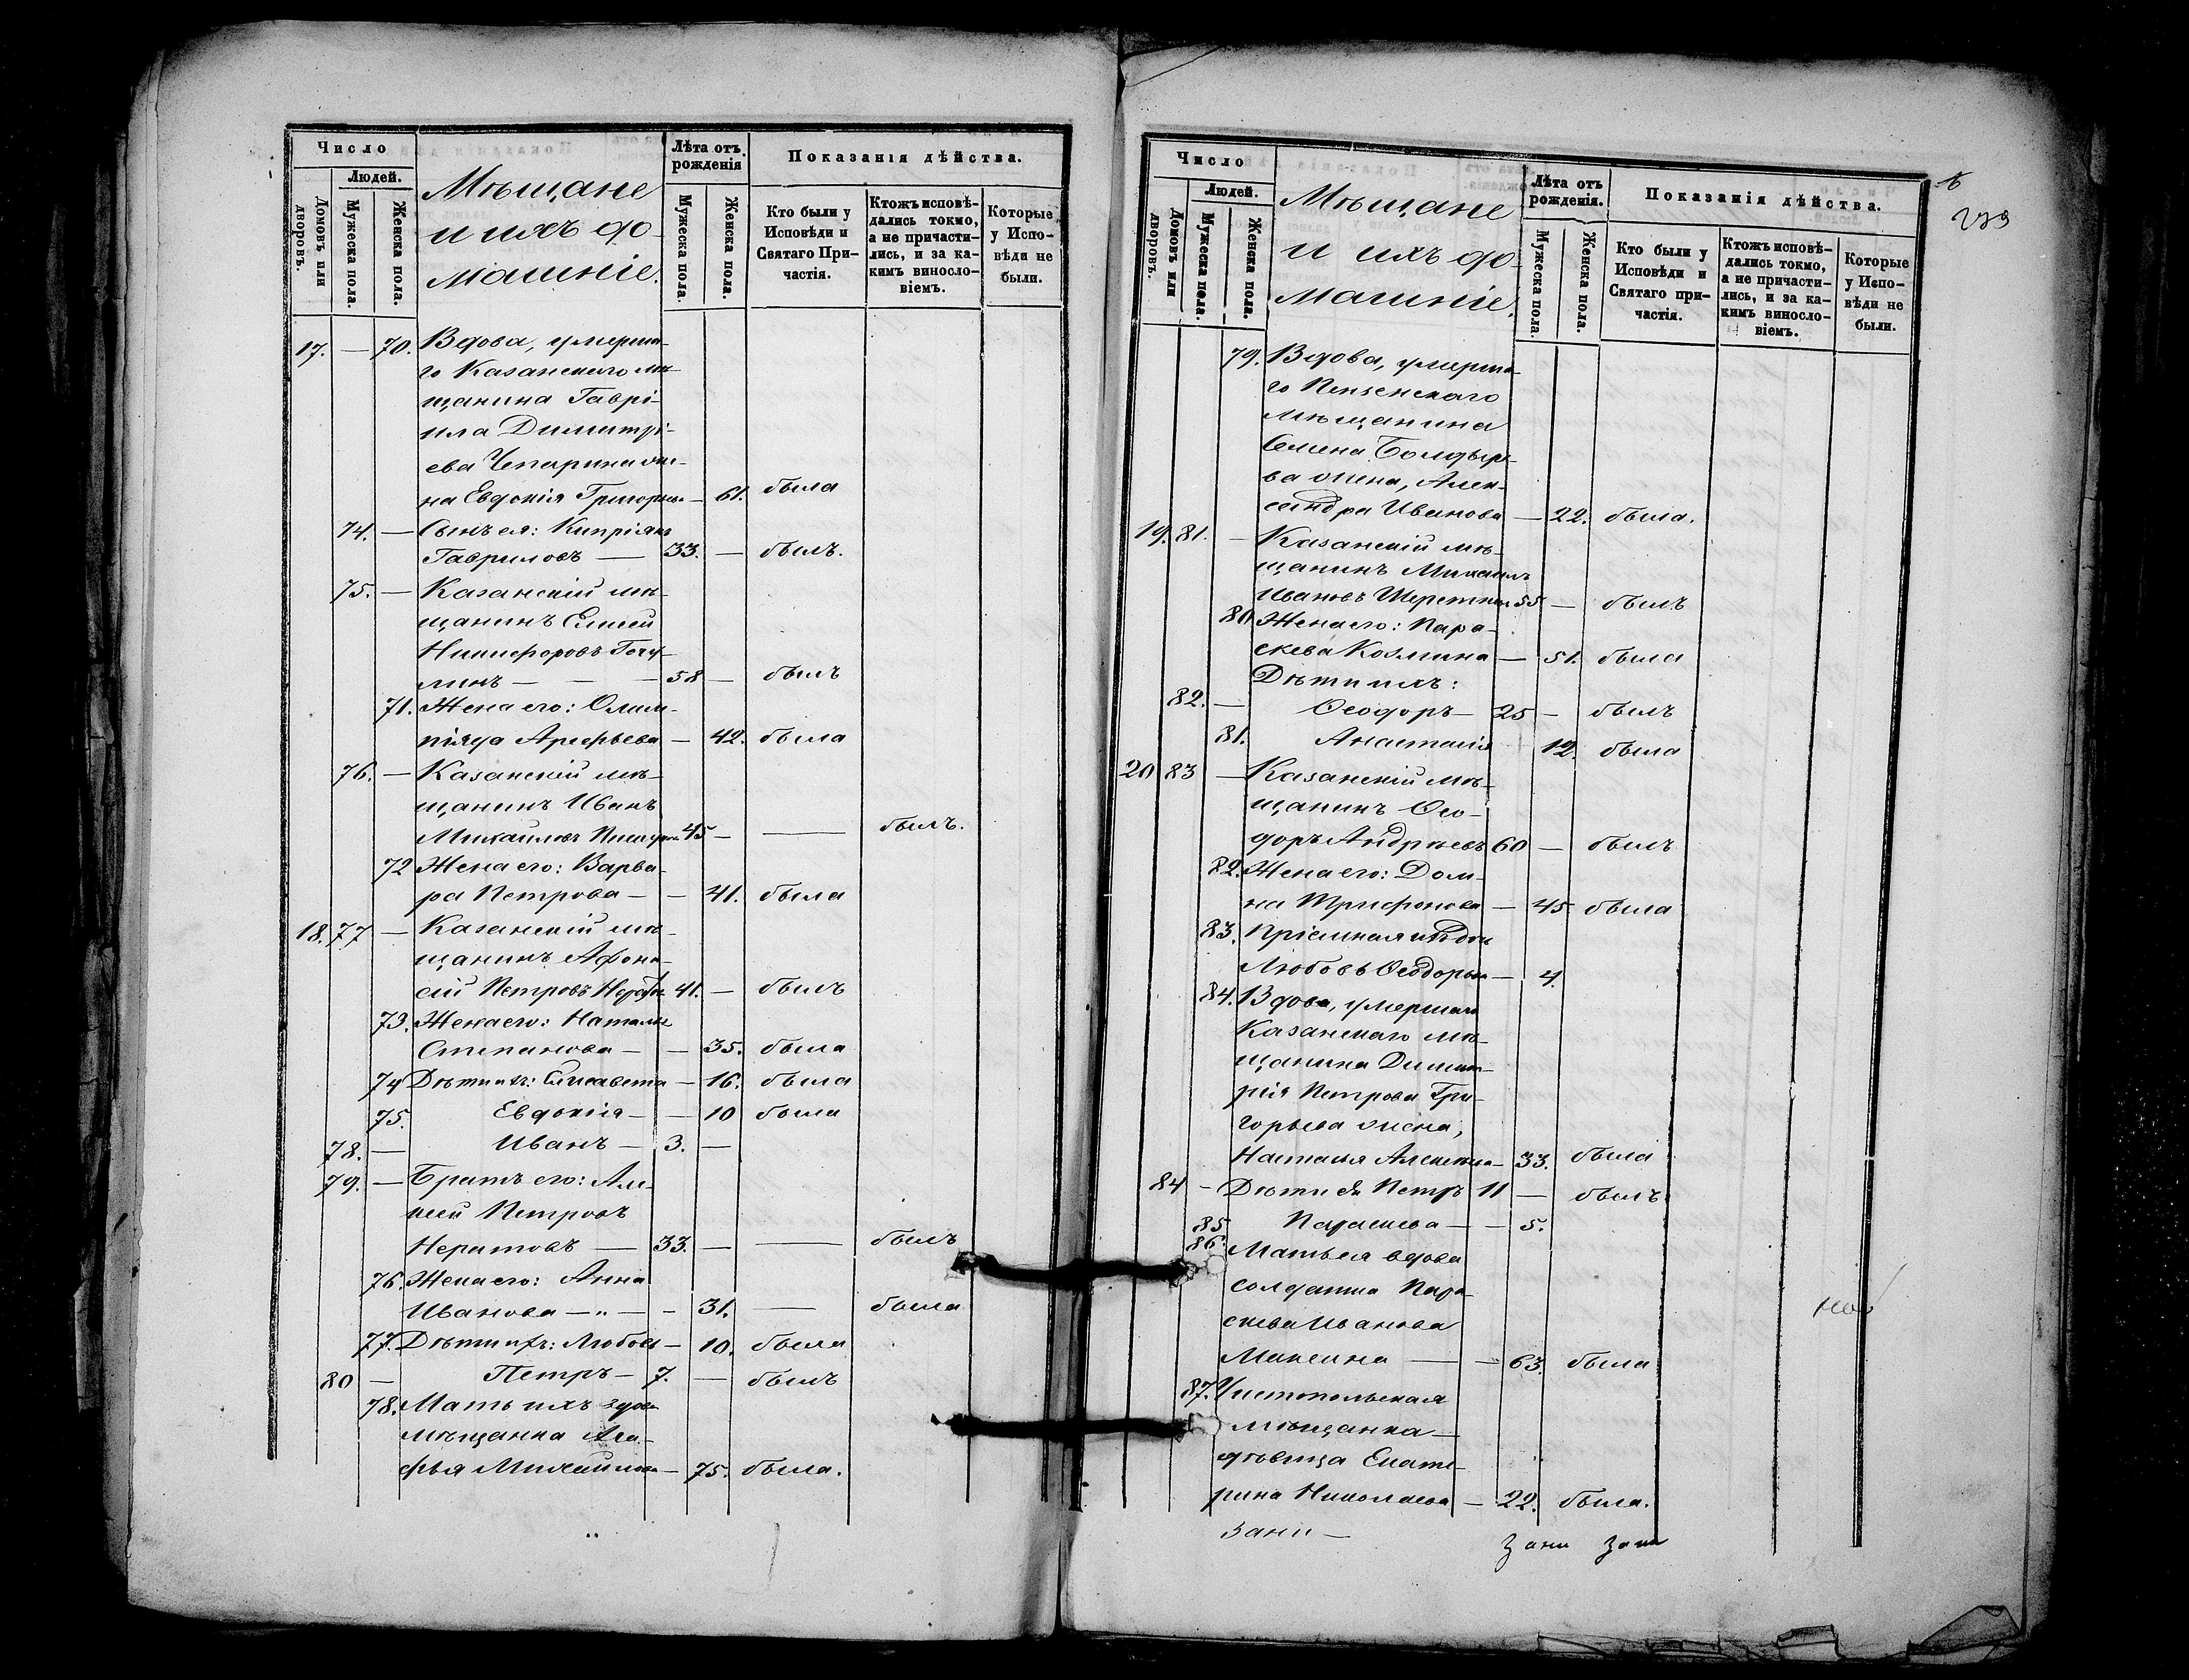 Число
Людей.
Домовъ или дворовъ.
Мужеска пола.
Женска пола.
Мѣщане
и ихъ до-
машніе.
Лѣта отъ рожденія
Мужеска пола.
Женска пола.
Показанія дѣйства.
Кто были у Исповѣди и Святаго При-частія.
Ктожъ исповѣ-дались токмо, а не причасти-лись, и за ка-кимъ винослo-віемъ.
Которые у Испо-вѣди не были.
17. — 70. Вдова, умерша-
го Казанскаго мѣ-
щанина Гаврі-
ила Димитрі-
ева жe-
на Евдокія Григорьева — 61. была
74. — Сынъ ея: Кипріянъ
Гавриловъ — 33. — былъ.
75. — Казанскій мѣ-
щанинъ Елисей
Никифоровъ
линъ — — — 58 — былъ
71. Жена его: Олим-
піада Арефьева — 42. была
76. — Казанскій мѣ-
щанинъ Иванъ
Михайловъ 45 — — былъ.
72 Жена его: Варва-
ра Петрова — — 41. была
18. 77 — Казанскій мѣ-
щанинъ Афона-
сій Петровъ 41. — былъ
73. Жена его: Наталья
Степанова — — 35. была
74 Дѣти ихъ: Елисавета — 16. была
75. Евдокія — — 10 была
78. — Иванъ — 3. —
79. — Братъ его: Але-
ксѣй Петровъ
Нератовъ — 33. — — былъ
76. Жена его: Анна
Иванова — „ — - 31. — была
77. Дѣти ихъ: Любовь — 10. была
80 — Петръ — 7. — былъ
78. Мать ихъ вдова
мѣщанка Ага-
фья Михайлова — 75. была.
239
Число
Людей.
Домовъ или дворовъ.
Мужеска пола.
Женска пола.
Мѣщане
и ихъ до-
машніе.
Лѣта отъ рожденія.
Мужеска пола.
Женска пола.
Показанія дѣйства.
Кто были у Исповѣди и Святаго при-частія.
Ктожъ исповѣ-дались токмо, а не причасти-лись, и за ка-кимъ винослo-віемъ.
Которые у Испо-вѣди не были.
79. Вдова, умерша-
го Пензенскаго
мѣщанина
Семена Болдыре-
ва жена, Алек-
сандра Иванова — 22. была.
19. 81. — Казанскій мѣ-
щанинъ Михаилъ
Ивановъ 55 — былъ
80 Жена его: Пара-
скева Козмина — 51. была
Дѣти ихъ:
82. — Ѳеодоръ — 25 — былъ
81. Анастасія 12. была
20 83 — Казанскій мѣ-
щанинъ Ѳео-
доръ Андреевъ 60 — былъ
82. Жена его: Дом-
на Трифонова — 45 была
83. Пріемная ихъ дочь
Любовь Ѳеодорова — 4.
84. Вдова, умершаго
Казанскаго мѣ-
щанина Димит-
рія Петрова Гри-
горьева жена,
Наталья Алексѣева — 33. была
84 — Дѣти ея Петръ 11 — былъ
85 Параскева — — 5.
86. Мать ея вдова
солдатка Пара-
скева Иванова
Максина — — 63. была
87. Чистопольская
мѣщанка
дѣвица Екате-
рина Николаева — 22. была.